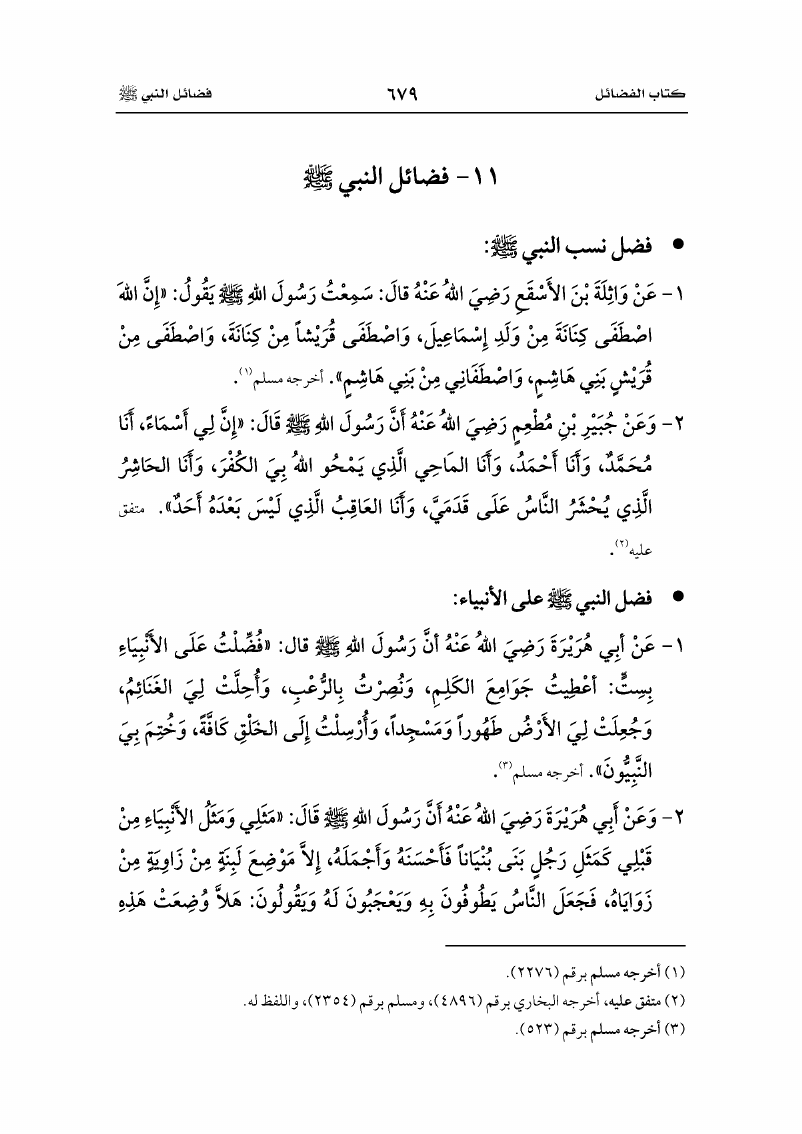 كتاب الفضائل ٦٧٩ فضائل النبي ﷺ
١١- فضائل النبي ﷺ
• فضل نسب النبي ﷺ:
١- عَنْ وَاثِلَةَ بْنَ الأَسْقَعِ رَضِيَ اللهُ عَنْهُ قالَ: سَمِعْتُ رَسُولَ اللهِ ﷺ يَقُولُ: «إِنَّ اللهَ
اصْطَفَى كِنَانَةَ مِنْ وَلَدِ إِسْمَاعِيلَ، وَاصْطَفَى قُرَيْشاً مِنْ كِنَانَةَ، وَاصْطَفَى مِنْ
قُرَيْشٍ بَنِي هَاشِمٍ، وَاصْطَفَانِي مِنْ بَنِي هَاشِمٍ». أخرجه مسلم(١).
٢- وَعَنْ جُبَيْرِ بْنِ مُطْعِمٍ رَضِيَ اللهُ عَنْهُ أَنَّ رَسُولَ اللهِ ﷺ قَالَ: «إِنَّ لِي أَسْمَاءً، أَنَا
مُحَمَّدٌ، وَأَنَا أَحْمَدُ، وَأَنَا المَاحِي الَّذِي يَمْحُو اللهُ بِيَ الكُفْرَ، وَأَنَا الحَاشِرُ
الَّذِي يُحْشَرُ النَّاسُ عَلَى قَدَمَيَّ، وَأَنَا العَاقِبُ الَّذِي لَيْسَ بَعْدَهُ أَحَدٌ». متفق
عليه(٢).
• فضل النبي ﷺ على الأنبياء:
١- عَنْ أبِي هُرَيْرَةَ رَضِيَ اللهُ عَنْهُ أنَّ رَسُولَ اللهِ ﷺ قال: «فُضِّلْتُ عَلَى الأَنْبِيَاءِ
بِسِتٍّ: أعْطِيتُ جَوَامِعَ الكَلِمِ، وَنُصِرْتُ بِالرُّعْبِ، وَأُحِلَّتْ لِيَ الغَنَائِمُ،
وَجُعِلَتْ لِيَ الأَرْضُ طَهُوراً وَمَسْجِداً، وَأُرْسِلْتُ إِلَى الخَلْقِ كَافَّةً، وَخُتِمَ بِيَ
النَّبِيُّونَ». أخرجه مسلم(٣).
٢- وَعَنْ أَبِي هُرَيْرَةَ رَضِيَ اللهُ عَنْهُ أَنَّ رَسُولَ اللهِ ﷺ قَالَ: «مَثَلِي وَمَثَلُ الأَنْبِيَاءِ مِنْ
قَبْلِي كَمَثَلِ رَجُلٍ بَنَى بُنْيَاناً فَأَحْسَنَهُ وَأَجْمَلَهُ، إِلاَّ مَوْضِعَ لَبِنَةٍ مِنْ زَاوِيَةٍ مِنْ
زَوَايَاهُ، فَجَعَلَ النَّاسُ يَطُوفُونَ بِهِ وَيَعْجَبُونَ لَهُ وَيَقُولُونَ: هَلاَّ وُضِعَتْ هَذِهِ
(١) أخرجه مسلم برقم (٢٢٧٦).
(٢) متفق عليه، أخرجه البخاري برقم (٤٨٩٦)، ومسلم برقم (٢٣٥٤)، واللفظ له.
(٣) أخرجه مسلم برقم (٥٢٣).